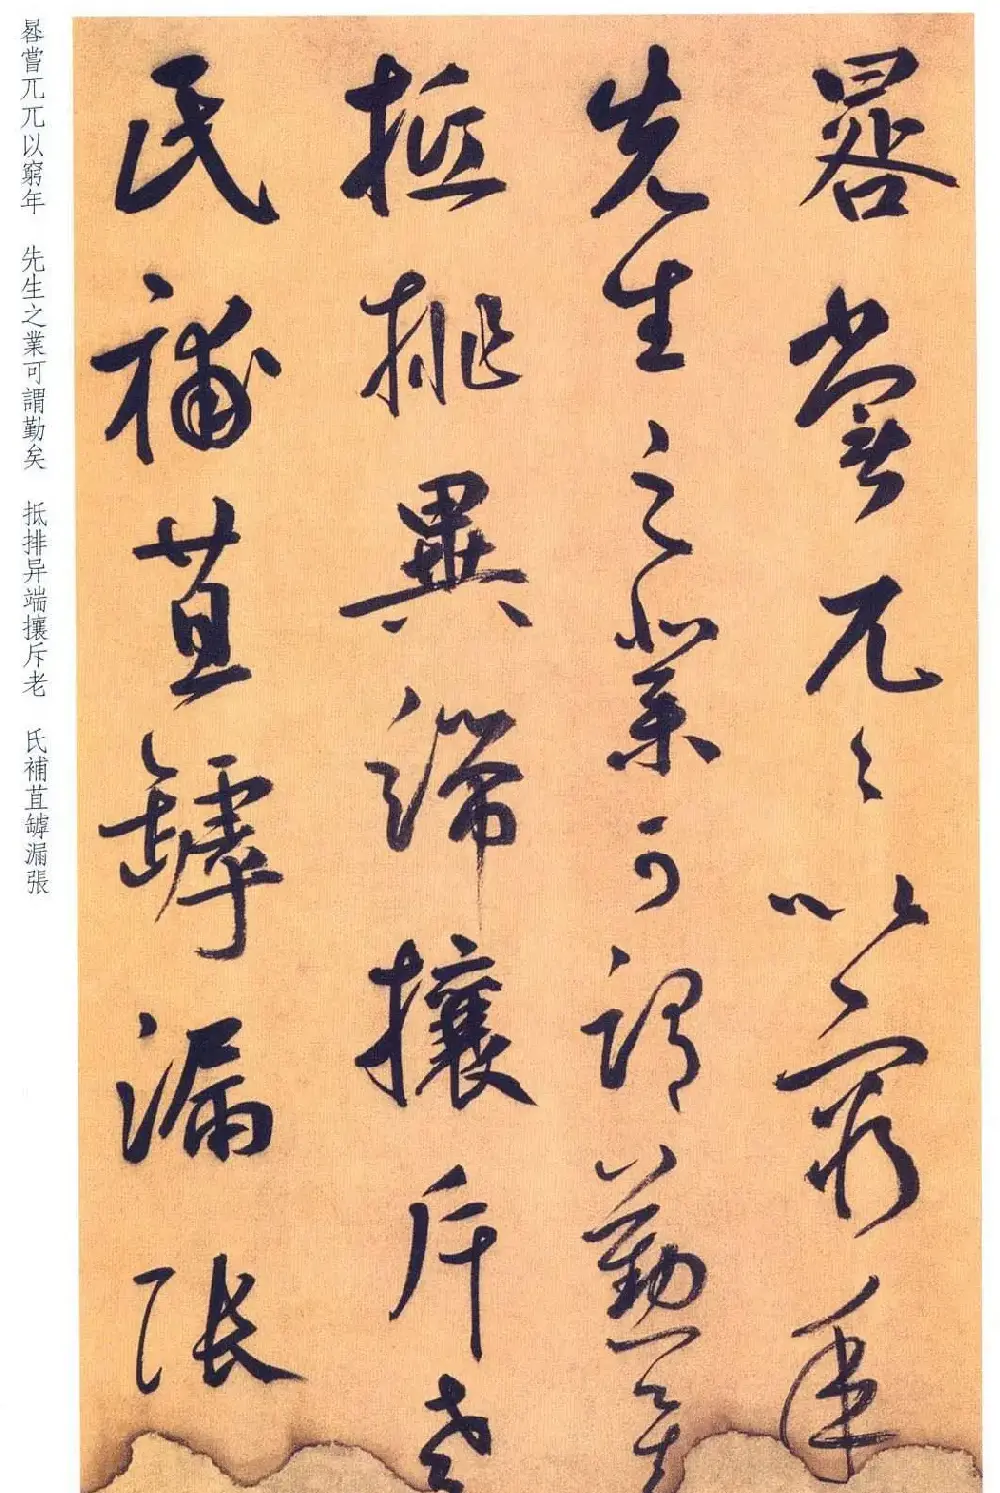 晷嘗兀々以窮年
先生之業可謂懃矣
抵排異端攘斥老
氏補苴罅漏張
晷嘗兀兀以窮年　先生之業可謂勤矣　抵排异端攘斥老　氏補苴罅漏張